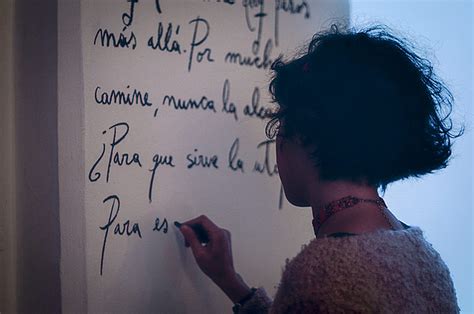 pasos
más allá. Por mucho
camine, nunca la alca
¿Para que sirve la uto
Para es